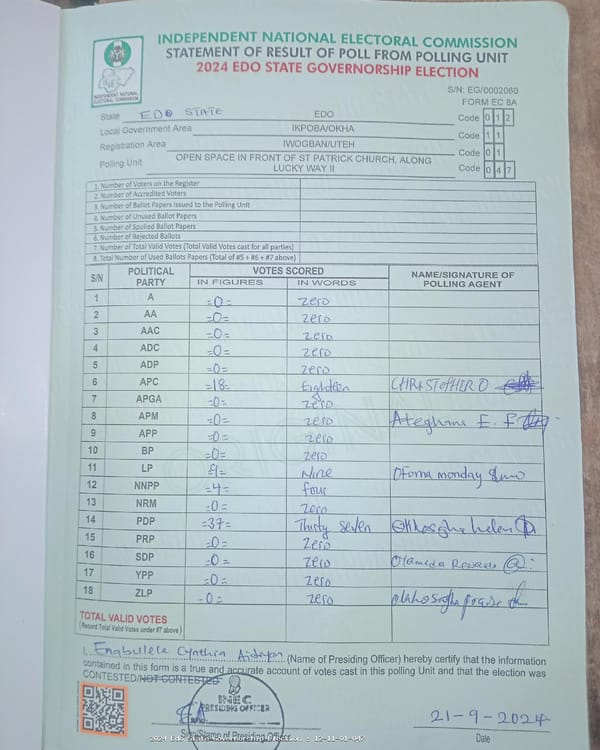 INDEPENDENT NATIONAL ELECTORAL COMMISSION
STATEMENT OF RESULT OF POLL FROM POLLING UNIT
2024 EDO STATE GOVERNORSHIP ELECTION
INDEPENDENT NATIONAL
ELECTORAL COMMISSION
S/N: EG/0002060
FORM EC 8A
State EDO STATE EDO Code 0 1 2
Local Government Area IKPOBA/OKHA Code 1 1
Registration Area IWOGBAN/UTEH Code 0 1
Polling Unit OPEN SPACE IN FRONT OF ST PATRICK CHURCH, ALONG LUCKY WAY II Code 0 4 7
1. Number of Voters on the Register
2. Number of Accredited Voters
3. Number of Ballot Papers Issued to the Polling Unit
4. Number of Unused Ballot Papers
5. Number of Spoiled Ballot Papers
6. Number of Rejected Ballots
7. Number of Total Valid Votes (Total Valid Votes cast for all parties)
8. Total Number of Used Ballots Papers (Total of #5 + #6 + #7 above)
S/N POLITICAL PARTY VOTES SCORED NAME/SIGNATURE OF POLLING AGENT
IN FIGURES IN WORDS
1 A =0= zero
2 AA =0= zero
3 AAC =0= zero
4 ADC =0= zero
5 ADP =0= zero
6 APC =18= Eighteen CHRISTOPHER O
7 APGA =0= zero
8 APM =0= zero E. F
9 APP =0= zero
10 BP =0= zero
11 LP 9= Nine monday
12 NNPP =4= four
13 NRM =0= zero
14 PDP =37= Thirty seven helen
15 PRP =0= zero
16 SDP =0= zero
17 YPP =0= zero
18 ZLP =0= zero
TOTAL VALID VOTES
(Record Total Valid Votes under #7 above)
I, Cynthia (Name of Presiding Officer) hereby certify that the information
contained in this form is a true and accurate account of votes cast in this polling Unit and that the election was
CONTESTED/NOT CONTESTED
INEC
PRESIDING OFFICER
of Presiding Officer
21-9-2024
Date